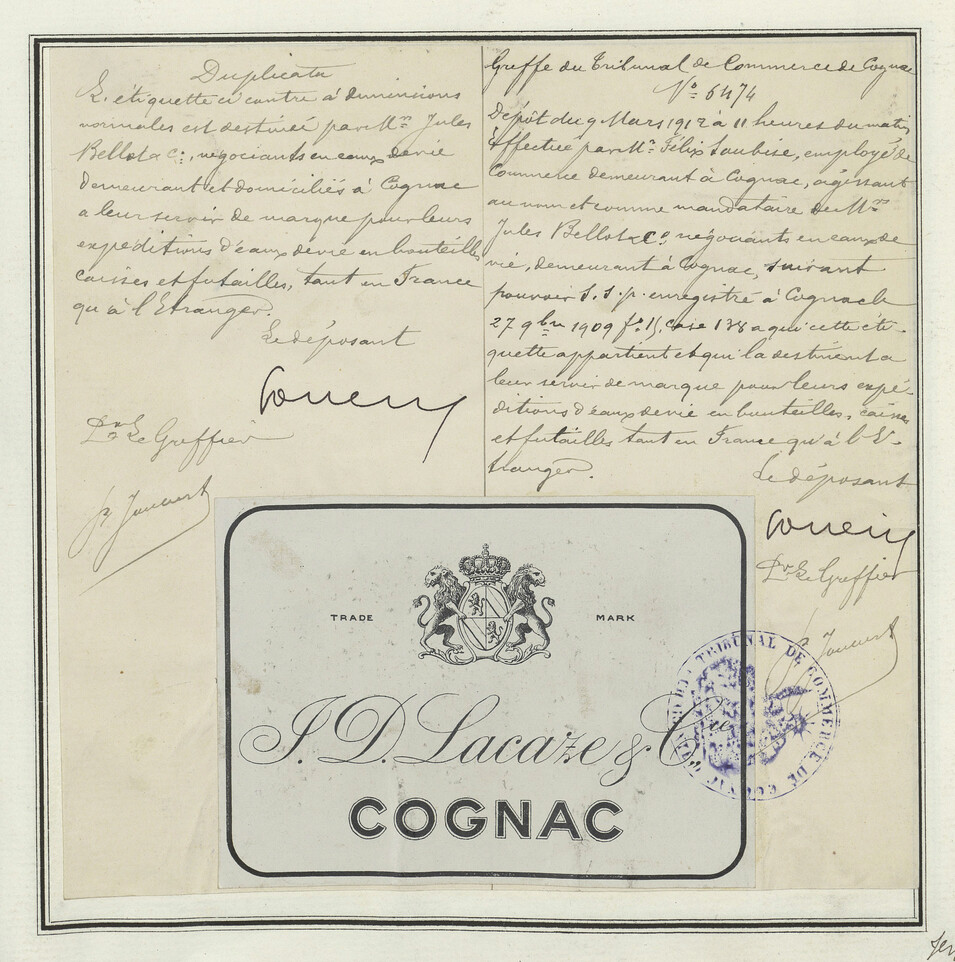 Duplicata
L'étiquette ci contre à dimensions
normales est destinée par Mrs Jules
Bellot & Cie, négociants en eaux de vie
demeurant et domiciliés à Cognac
a leur servir de marque pour leurs
expéditions d'eaux de vie en bouteilles
caisses et futailles, tant en France
qu'à l'Etranger.
Le déposant
Le Greffier
Greffe du Tribunal de Commerce de Cognac
No 6474
Dépôt du 9 Mars 1912 à 11 heures du matin
Effectué par Mr Félix Saubise, employé de
Commerce demeurant à Cognac, agissant
au nom et comme mandataire de Mrs
Jules Bellot & Co négociants en eaux de
vie, demeurant à Cognac, suivant
pouvoir S.S.p. enregistré à Cognac le
27 9bre 1909 fo 15, case 138 a qui cette éti-
quette appartient et qui la destinent a
leur servir de marque pour leurs expé-
ditions d'eaux de vie en bouteilles, caisses
et futailles tant en France qu'à l'E-
tranger.
Le déposant
Le Greffier
TRADE MARK
J. D. Lacaze & Cie
COGNAC
TRIBUNAL DE COMMERCE DE COGNAC